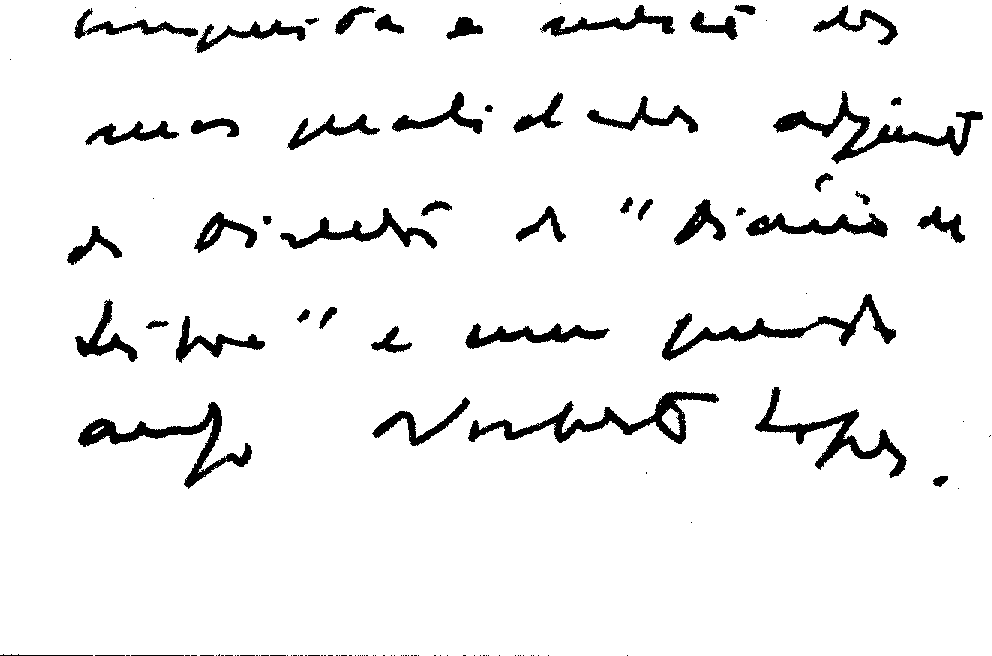 conquista e [...] dos
suas qualidades adjunto
do Director do "Diário de
Lisboa" e meu querido
amigo Norberto Lopes.